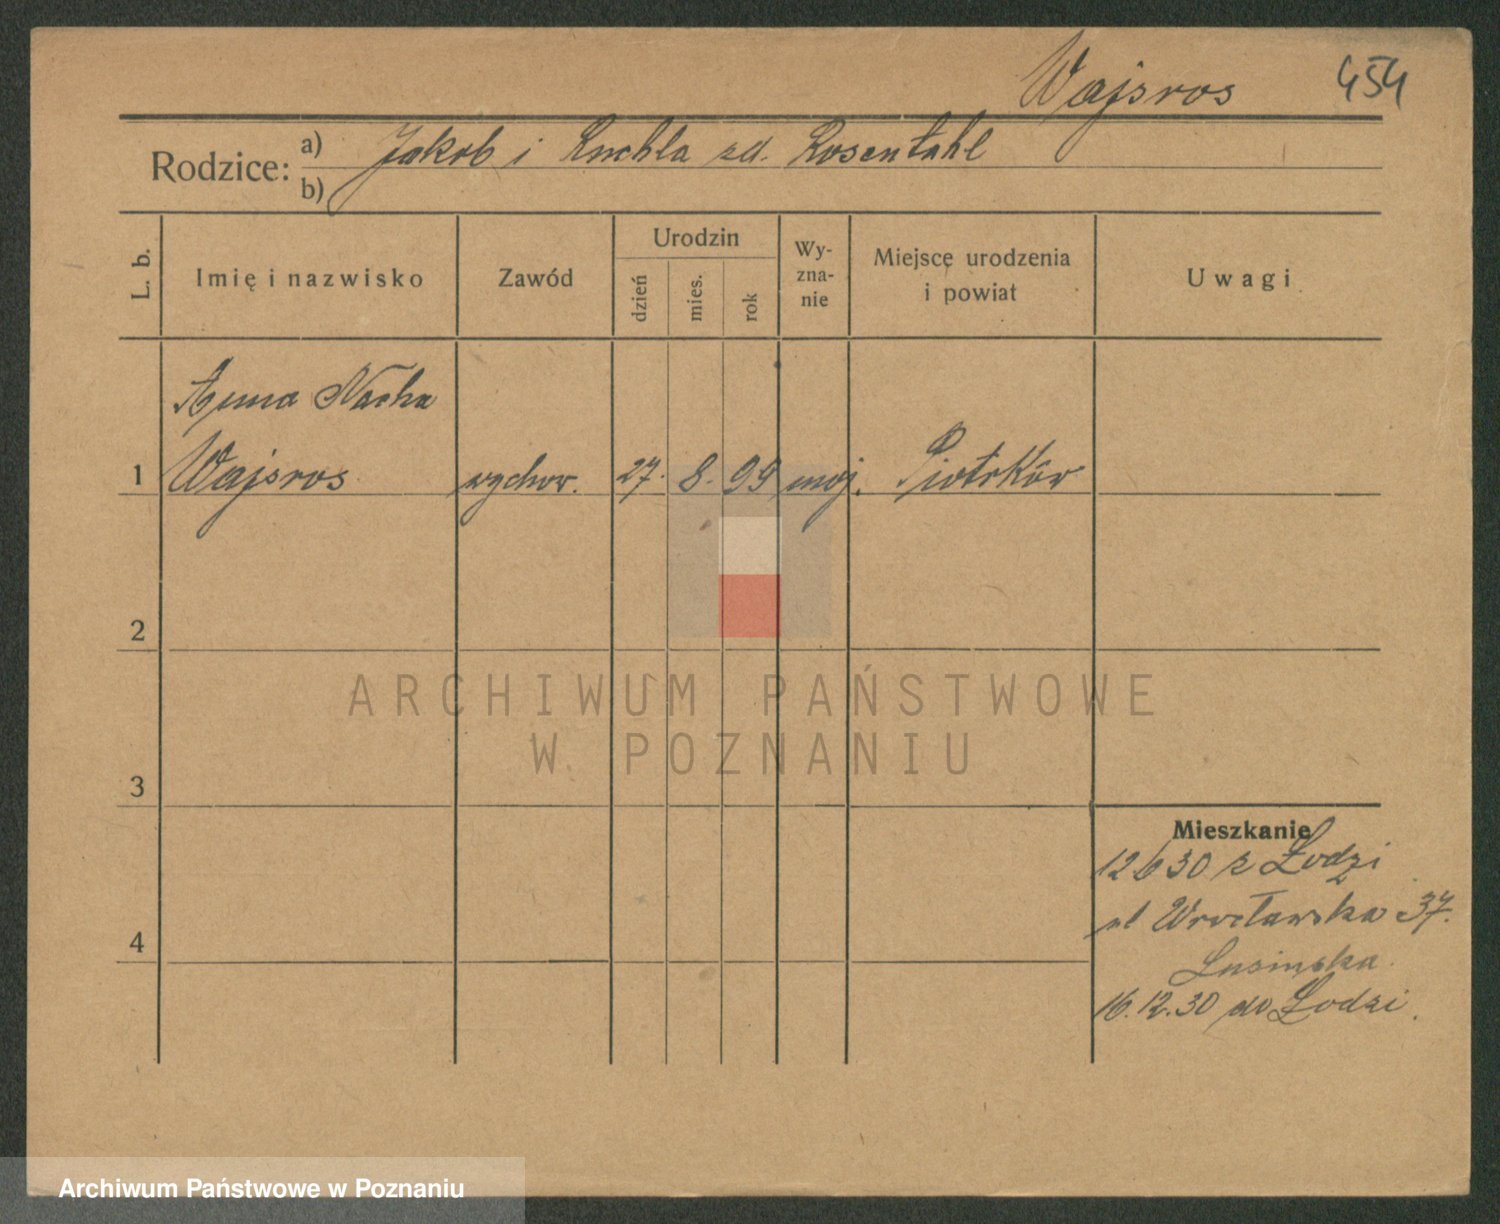 Wajsros
454
Rodzice:
a) Jakob i Ruchla zd. Rosentahl
b)
L. b.
Imię i nazwisko
Zawód
Urodzin
dzień
mies.
rok
Wy-
zna-
nie
Miejsce urodzenia
i powiat
Uwagi
Anna Nacha
1 Wajsros wychow. 27. 8. 99 moj. Piotrków
2
3
4
Mieszkanie
12 6 30 z Łodzi
ul Wrocławska 37.
16.12.30 do Łodzi.
ARCHIWUM PAŃSTWOWE
W POZNANIU
Archiwum Państwowe w Poznaniu